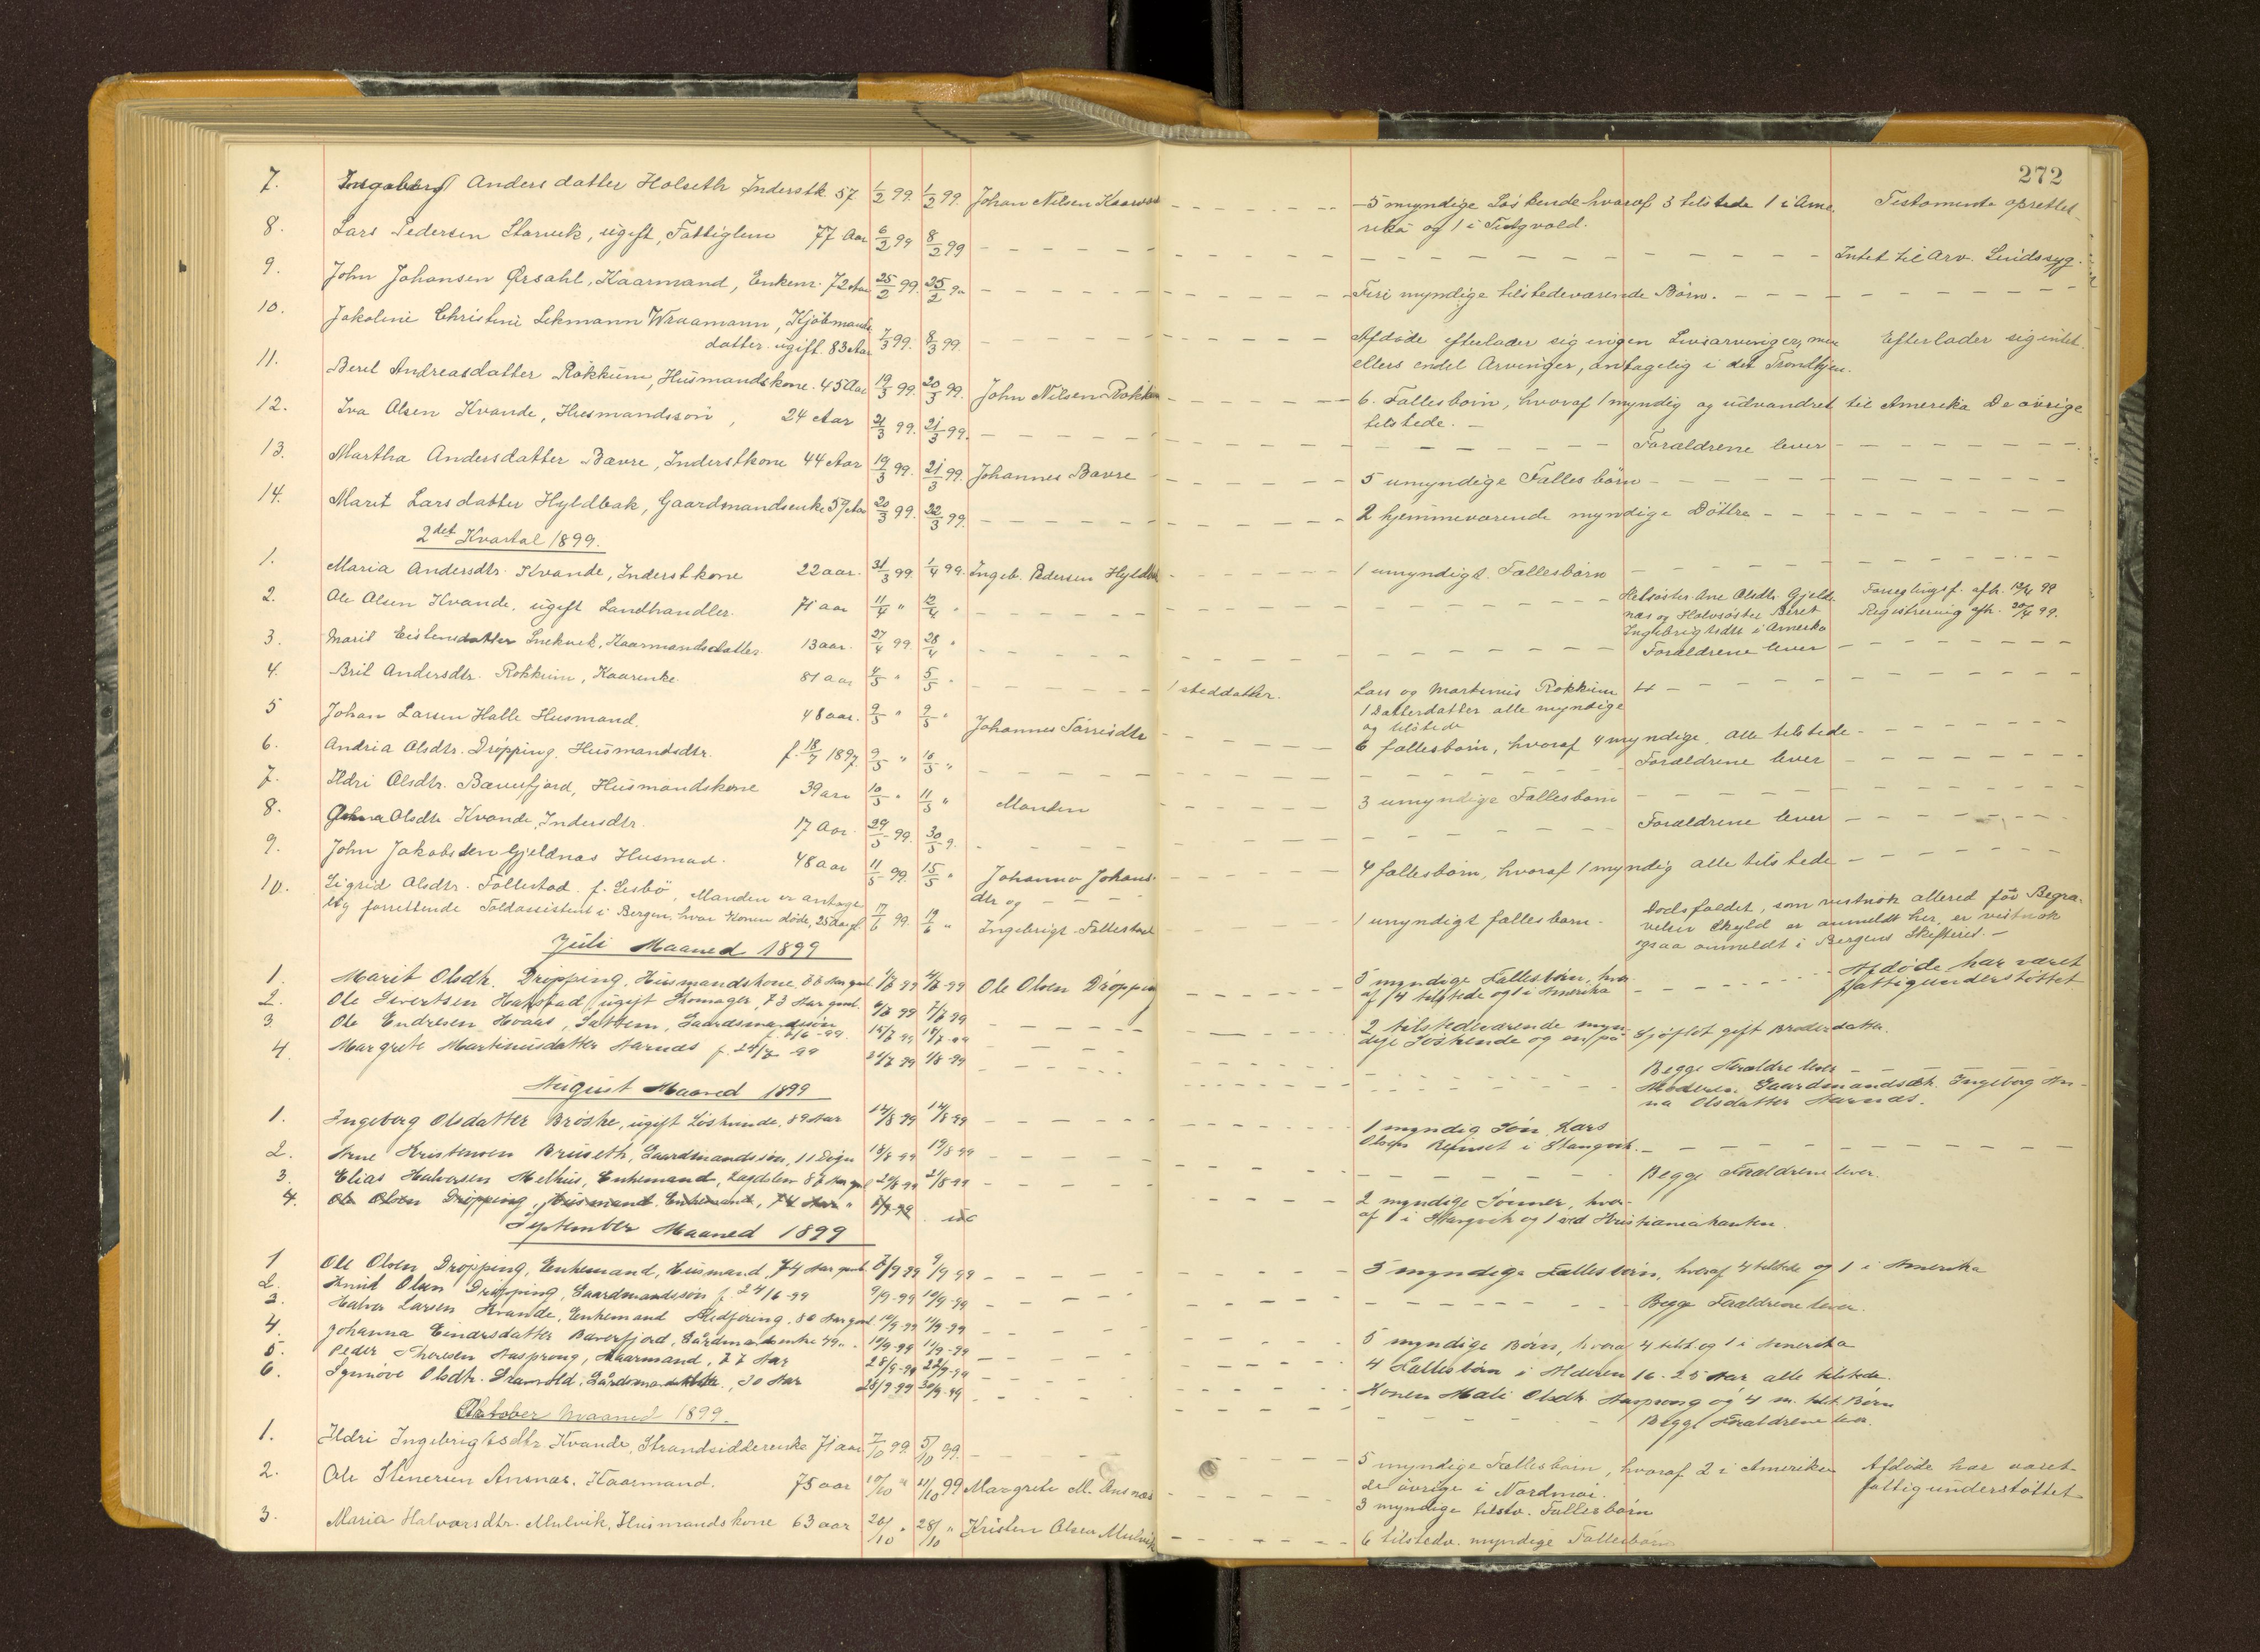 272
7. Ingeborg Andersdatter Holseth Inderstk 57 1/2 99. 1/2 99. Johan Nilsen - - - 5 myndige Søskende hvoraf 3 tilstede 1 i Ame- Testamente oprettet.
rika og 1 i Tingvold.
8. Lars Pedersen, ugift, Fattiglem 77 Aar 6/2 99 8/2 99 - - - Intet til Arv. Sindssyg.
9. John Johansen Ørsahl, Kaarmand, Enkem. 72 Aar 25/2 99. 25/2 9- - - - Fire myndige tilstedeværende Børn. - - -
10. Jakoline Christine Lekmann, Kjøbmands-
datter. ugift. 83 Aar 7/3 99. 8/3 99. - - - Afdøde efterlader sig ingen Livsarvinger, men Efterlader sig intet.
ellers endel Arvinger, antagelig i det Trondhjem.
11. Beret Andreasdatter Røkkum, Husmandskone. 45 Aar 19/3 99. 20/3 99. John Nilsen Røkkum - - - 6. Fællesbørn, hvoraf 1 myndig og udvandret til Amerika De øvrige
tilstede. -
12. Iva Olsen Kvande, Husmandssøn, 24 Aar 21/3 99. 21/3 99. - - - Forældrene lever - - -
13. Martha Andersdatter Bævre, Inderstkone 44 Aar 19/3 99. 21/3 99. Johannes Bævre - - - 5 umyndige Fællesbørn - - -
14. Marit Larsdatter Hyldbak, Gaardmandsenke 59 Aar 20/3 99. 22/3 99. - - - 2 hjemmeværende myndige Døttre - - -
2det Kvartal 1899.
1. Maria Andersdtr. Kvande, Inderstkone 22 aar. 31/3 99. 1/4 99. Ingeb. Pedersen - - - 1 umyndigt. Fællesbarn - - -
2. Ole Olsen Kvande. ugift Landhandler. 71 aar 11/4 " 12/4 " - - - Helsøster Ane Olsdtr. Gjeld- Forseglingsf. afh. 12/4 99
næs og Halvsøster Beret Registrering afh. 20/4 99.
Ingebrigtsdtr i Amerika
3. Marit Eistensdatter, Kaarmandsdatter 13 aar. 27/4 99. 28/4 " - - - Forældrene lever - - -
4. Brit Andersdtr. Røkkum, Kaarenke 81 aar 4/5 " 5/5 " - - - 1 steddatter. Lars og Martinus Røkkum - - -
1 Datterdatter alle myndige
og tilstede
5 Johan Larsen Halle Husmand. 48 aar. 9/5 " 9/5 " Johannes - - - 6 fællesbørn, hvoraf 4 myndige. Alle tilstede - - -
6. Andria Olsdtr. Drøpping. Husmandsdtr. f. 18/7 1897. 9/5 " 10/5 " - - - Forældrene lever - - -
7. Ildri Olsdtr. Bæverfjord, Husmandskone 39 aar 10/5 " 11/5 " Manden - - - 3 umyndige Fællesbørn - - -
8. Olsdtr Kvande, Indersdtr. 17 Aar. 29/5 99. 30/5 9. - - - Forældrene lever - - -
9. John Jakobsen Gjeldnæs Husmand. 48 aar 11/5 99. 15/5 " Johanna Johans- - - - 4 fællesbørn, hvoraf 1 myndig alle tilstede - - -
dtr og - - -
10. Sigrid Olsdtr. Follestad f. Lesbø, Manden er antage-
lig forrettende Toldassistent i Bergen, hvor Konen døde, 25 Aar gl. 17/6 99. 19/6 " Ingebrigt Follestad - - - 1 umyndigt fællesbarn. Dødsfaldet, som vistnok allered før Begra-
velsen skyld er anmeldt her, er vistnok
ogsaa anmeldt i Bergens Skifteret. -
Juli Maaned 1899
1. Marit Olsdtr. Drøpping, Husmandskone, Aar gml 1/7 99 4/7 99 Ole Olsen Drøpping - - - 5 myndige Fællesbørn, hvor-
af 4 tilstede og 1 i Amerika
2. Ole Sivertsen, ugift, 73 Aar gml. 6/7 99 7/7 99 - - - Afdøde har været
fattigunderstøttet
3. Ole Endresen Hvaas, Gaardmandssøn - - - 2 tilstedeværende myn-
dige Søskende og en på Sjøflot gift Broderdatter.
4. Margrete Martinusdatter Aarnæs f. 24/7 -99 24/7 99 1/8 -99 - - - Begge Forældre lever - - -
Moderen Gaardmandsdtr. Ingeborg An-
na Olsdatter Aarnæs.
August Maaned 1899
1. Ingeborg Olsdatter Brøske, ugift, 89 Aar 12/8 99 14/8 99 - - - 1 myndig Søn Lars
Olsen i Stangvik. - - -
2. Arne Kristensen Bruseth, Gaardmandssøn, 11 Døgn 18/8 99 19/8 99 - - - Begge Forældrene lever.
3. Elias Halvorsen Melhus, Enkemand, Aar gml 20/8 99 21/8 99 - - - 2 myndige Sønner, hvor-
af 1 i Stangvik og 1 ved Kristianiakanten.
4. Ole Olsen Drøpping, Husmand. Enkemand, 74 Aar
September Maaned 1899
1 Ole Olsen Drøpping, Enkemand, Husmand, 74 Aar gml 8/9 99 9/9 99 - - - 5 myndige Fællesbørn, hvoraf 4 tilstede og 1 i Amerika
2. Knud Olsen Drøpping, Gaardmandssøn f. 24/6 -99 9/9 -99 10/9 -99 - - - Begge Forældrene lever.
3. Halvor Larsen Kvande, Enkemand Fledføring, 80 Aar gml 10/9 -99 11/9 -99 - - -
4. Johanna Einarsdatter Bæverfjord, Gårdmandsenke 79 " 10/9 -99 11/9 -99 - - - 5 myndige Børn, hvoraf 4 tilst. og 1 i Amerika
5. Peder Thoresen Aasprong, Kaarmand, 77 Aar - - - 4 Fællesbørn i Alderen 16-25 Aar alle tilstede.
6. Synnøve Olsdtr., 30 Aar 28/9 99 30/9 -99 - - - Konen Mali Olsdtr. Aasprong og 4 m. tilst. Børn
Begge Forældrene lever.
Oktober Maaned 1899.
1. Ildri Ingebrigtsdtr. Kvande, Strandsidderenke 71 aar 2/10 99. 5/10 99. - - - 5 myndige Fællesbørn, hvoraf 2 i Amerika Afdøde har været
de øvrige i Nordmør. fattigunderstøttet
2. Ole Stenersen Ansnæs. Kaarmand. 75 aar 10/10 " 11/10 99 Margrete M. Ansnæs - - - 3 myndige tilstv. Fællesbørn
3. Maria Halvorsdtr. Mulvik, Husmandskone 63 aar 26/10 " 28/10 " Kristen Olsen Mulvik - - - 6 tilstedv. myndige Fællesbørn